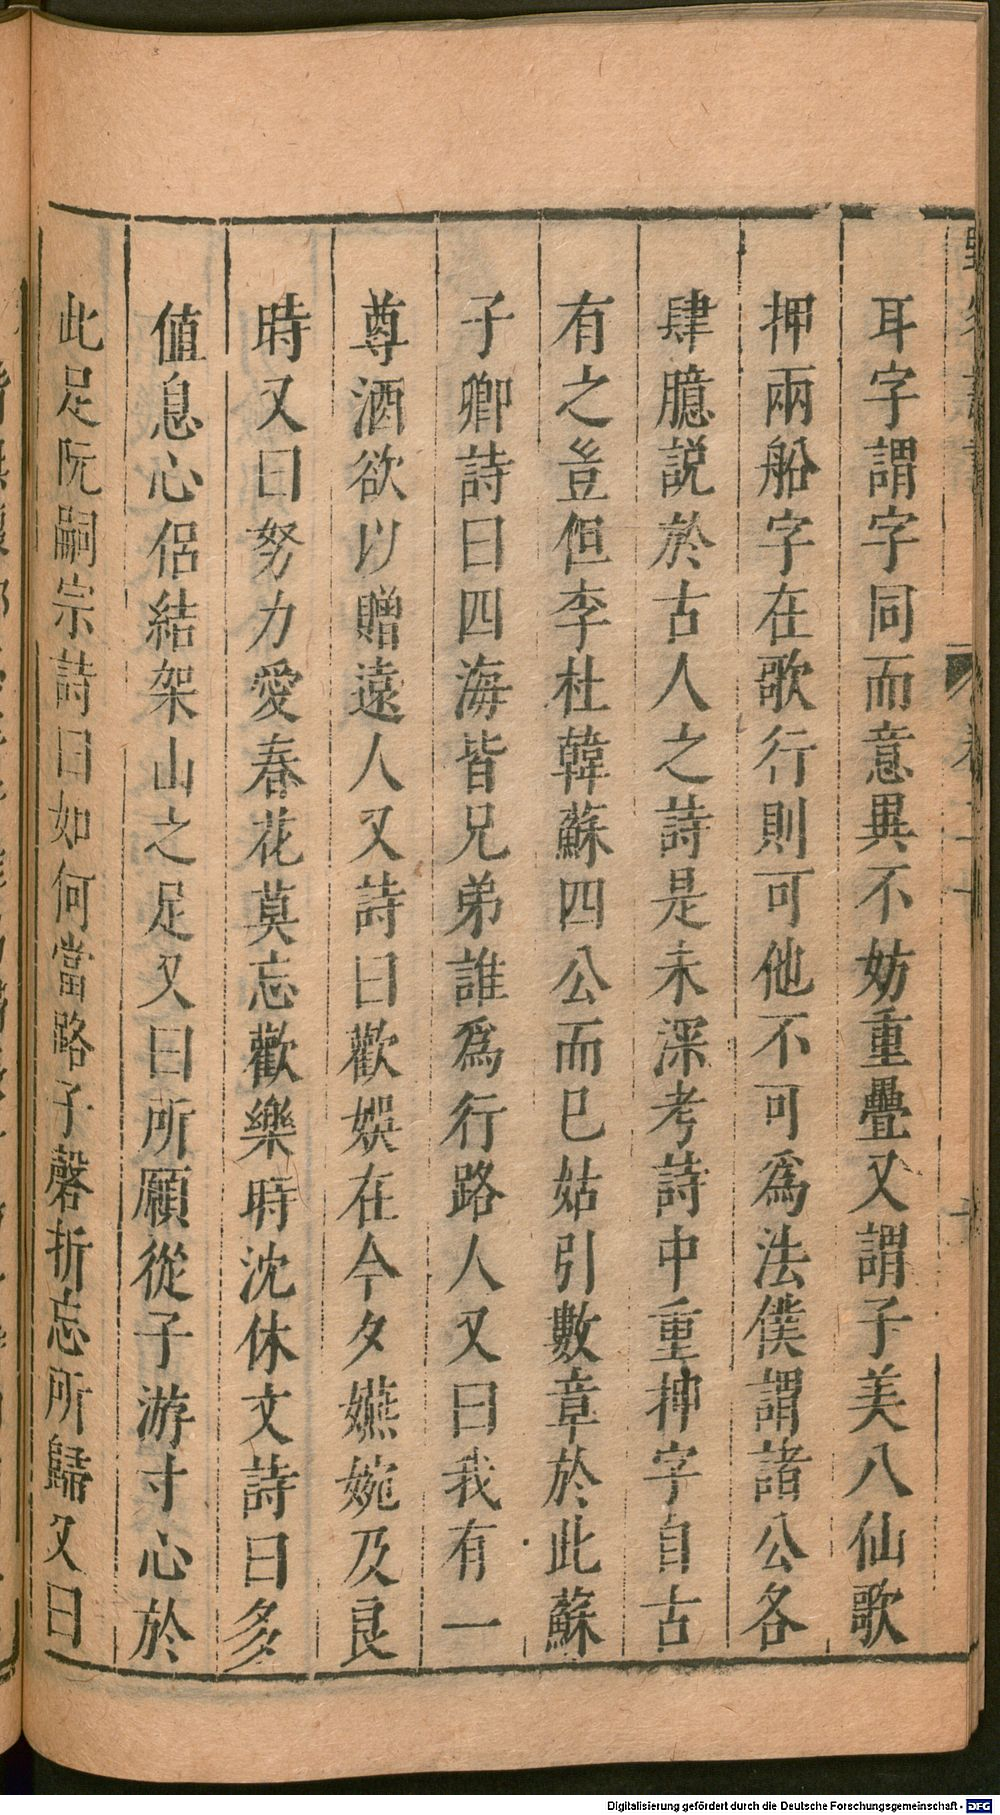 耳字謂字同而意異不妨重疊又謂子美八仙歌
押兩船字在歌行則可他不可爲法僕謂諸公各
肆臆説於古人之詩是未深考詩中重押字自古
有之豈但李杜韓蘇四公而已姑引數章於此蘇
子卿詩曰四海皆兄弟誰爲行路人又曰我有一
尊酒欲以贈遠人又詩曰歡娛在今夕嬿婉及良
時又曰努力愛春花莫忘歡樂時沈休文詩曰多
值息心侶結架山之足又曰所願從子游寸心於
此足阮嗣宗詩曰如何當路子磬折忘所歸又曰
Digitalisierung gefördert durch die Deutsche Forschungsgemeinschaft - DFG